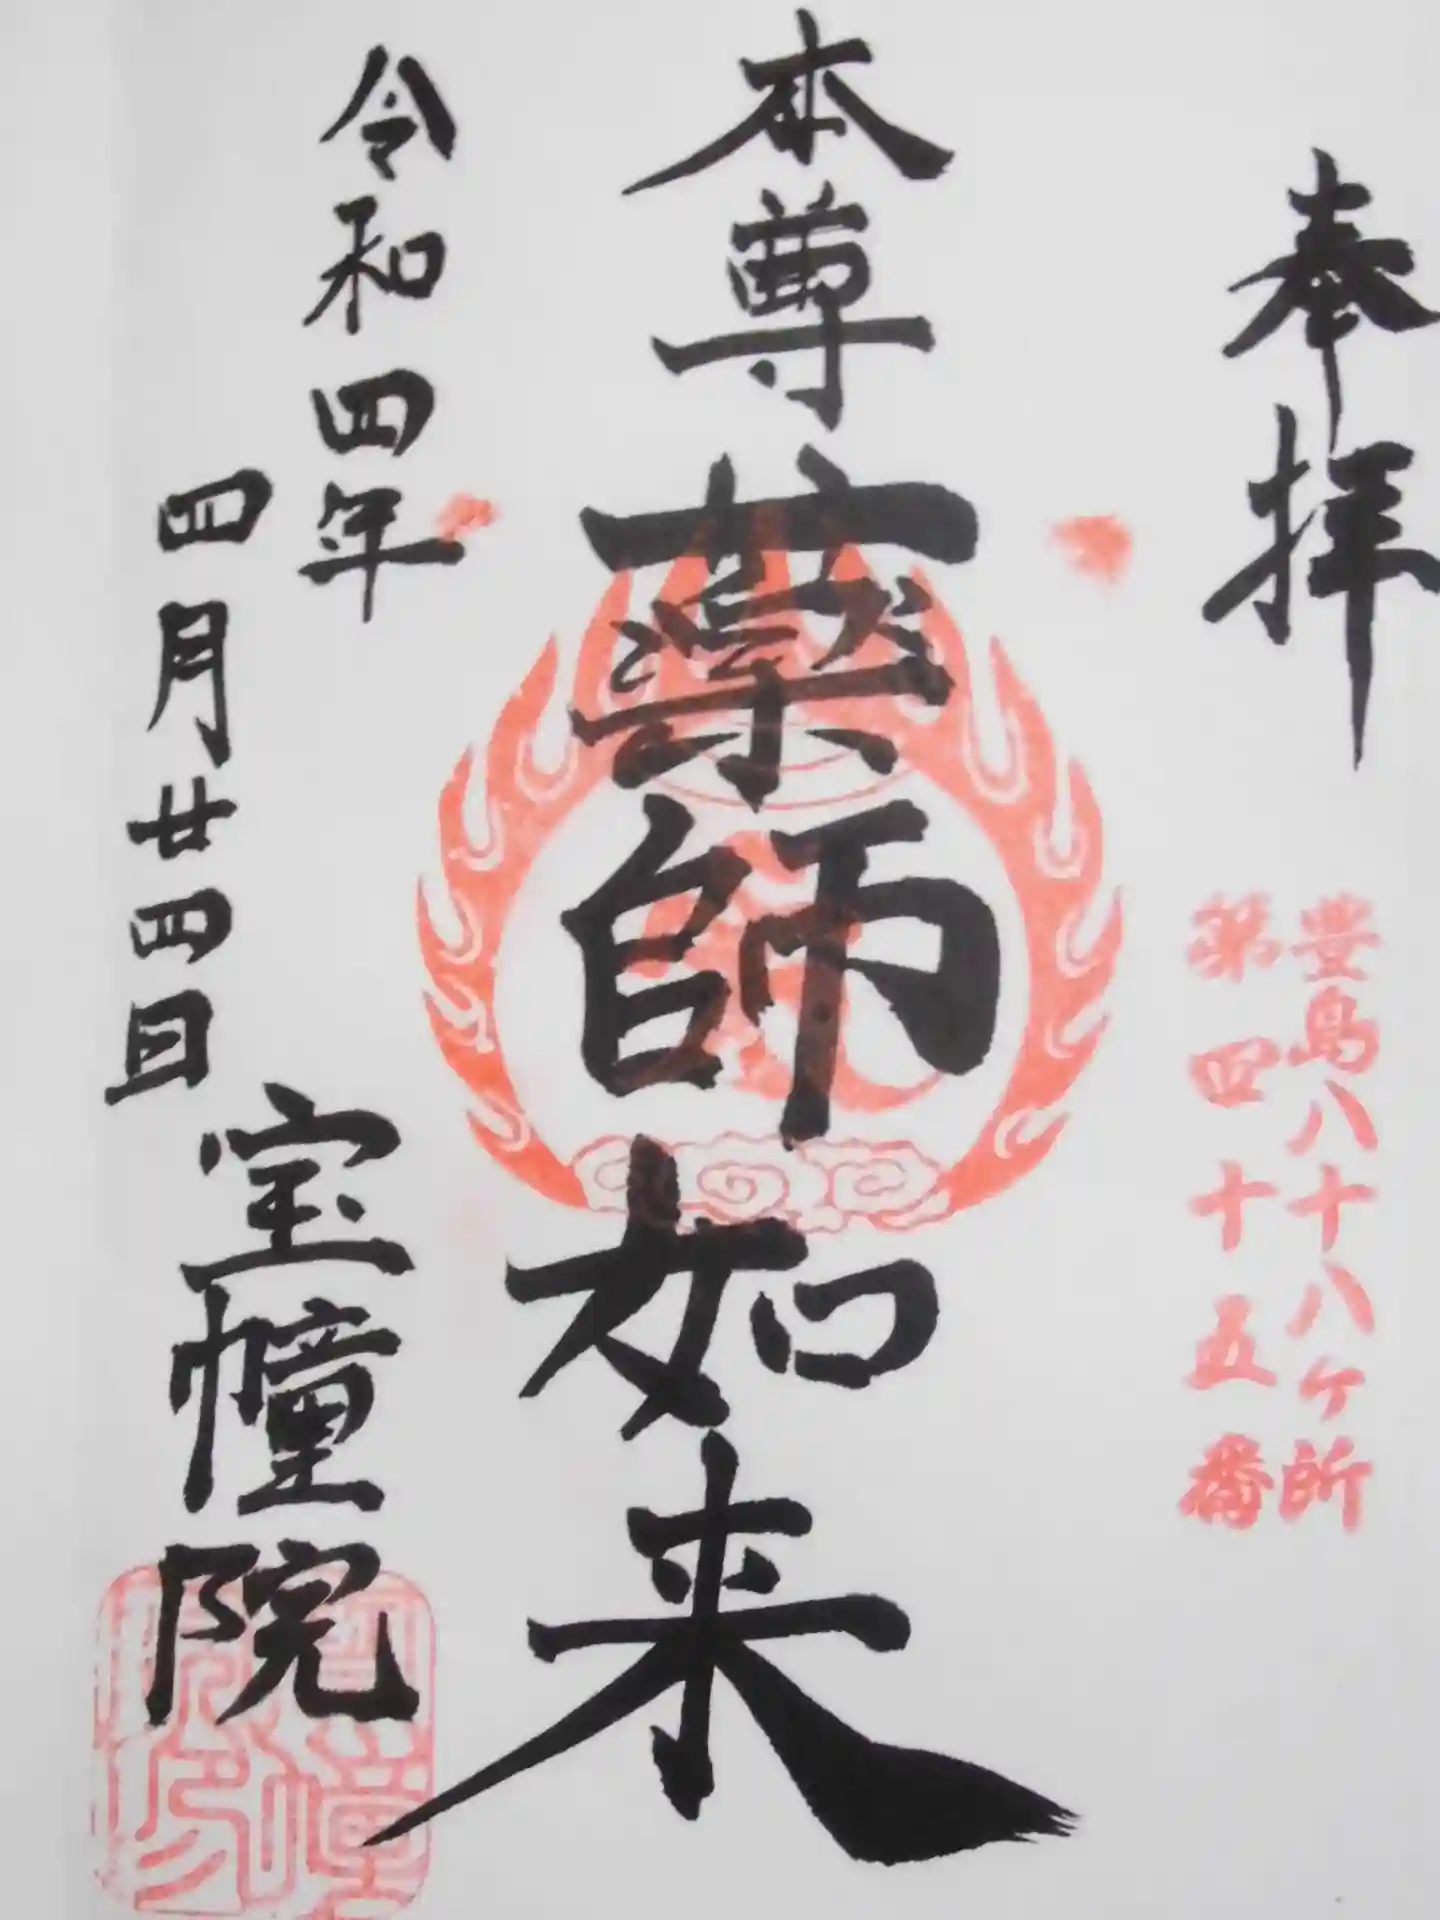 奉拝
豊島八十八ヶ所
第四十五番
本尊薬師如来
令和四年
四月廿四日
宝幢院